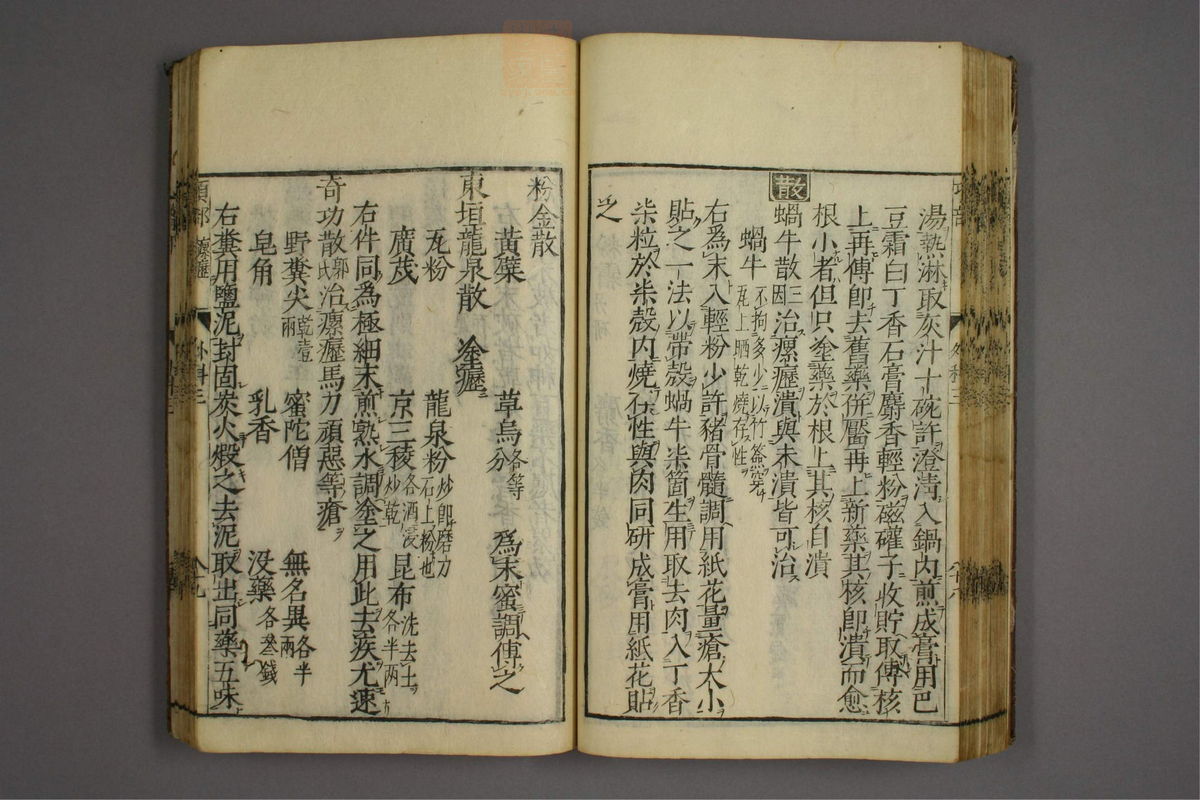 湯熱淋取灰汁十碗許澄淸入鍋內煎成膏用巴
豆霜白丁香石膏麝香輕粉磁確子收貯取傅核
上再傅卽去舊藥併靨再上新藥其核卽潰而愈
根小者但只塗藥於根上其核自潰
散
蝸牛散三因治瘰癧潰與未潰皆可治
蝸牛不拘多少以竹簽穿瓦上晒乾燒存性
右爲末入輕粉少許豬骨髓調用紙花量瘡大小
貼之一法以帶殼蝸牛柒箇生用取去肉入丁香
柒粒於柒殼內燒存性與肉同研成膏用紙花貼
之
粉金散
黃蘗 草烏各等分 爲末蜜調傅之
東垣龍泉散 塗癧
瓦粉 龍泉粉炒卽磨刀石上粉也
廣茂 京三稜各酒浸炒乾 昆布洗去土各半两
右件同爲極細末煎熟水調塗之用此去疾尤速
奇功散郭氏治瘰癧馬刀頑惡等瘡
野糞尖乾壹兩 蜜陀僧 無名異各半兩
皂角 乳香 沒藥各叄錢
右糞用鹽泥封固炭火煅之去泥取出同藥五味
項部 瘰癧 外科三 八十九